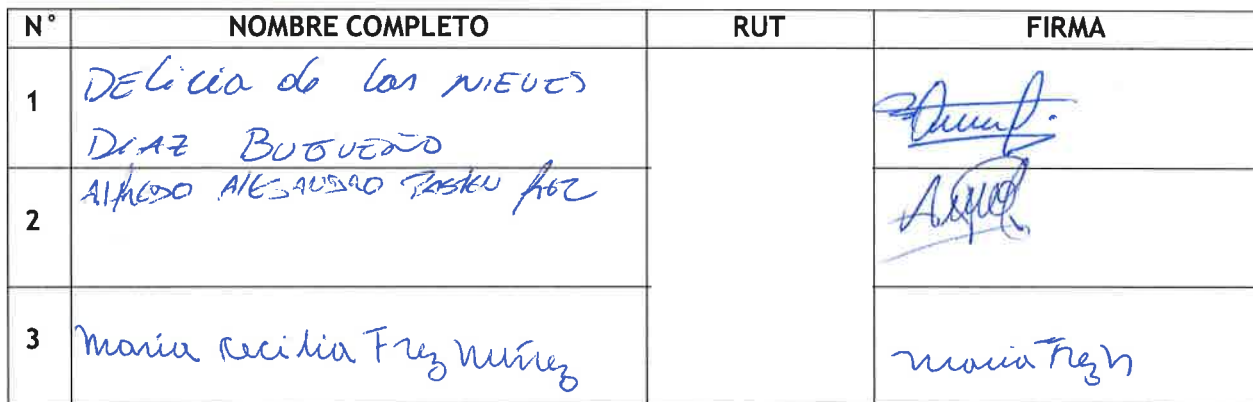 N° NOMBRE COMPLETO RUT FIRMA
1 DELicia de las NIEVES
DIAZ BUGUEÑO
2 AlfREDO AlEJANDRO PASTEN
3 Maria cecilia Frez Nuñez maria Frez N